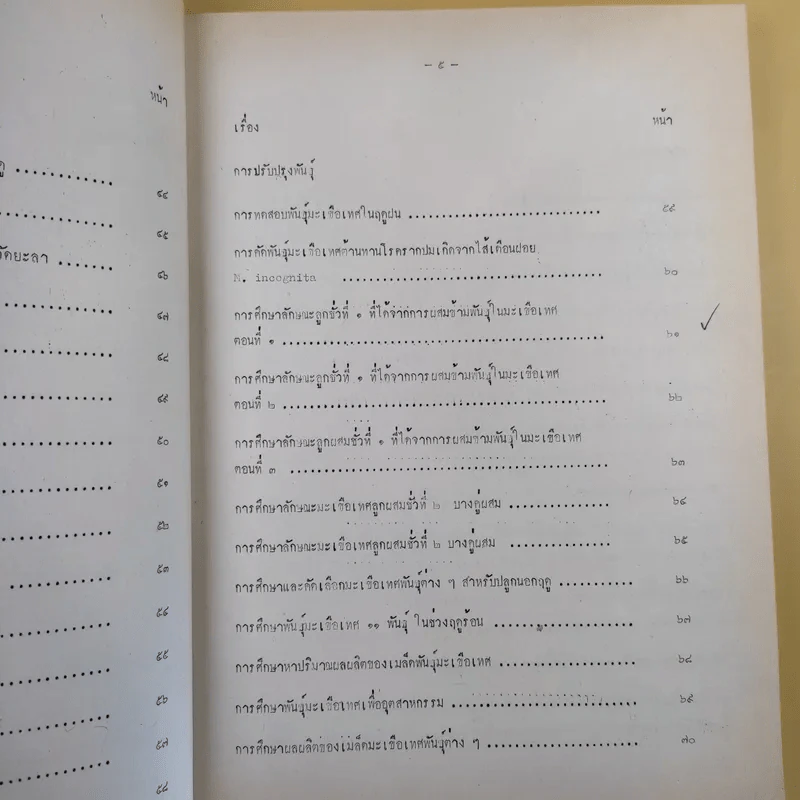 หน้า
๔๔
๔๕
๔๖
๔๗
๔๘
๔๙
๕๐
๕๑
๕๒
๕๓
๕๔
๕๕
๕๖
๕๗
๕๘
- ๕ -
เรื่อง หน้า
การปรับปรุงพันธุ์
การทดสอบพันธุ์มะเขือเทศในฤดูฝน ............................ ๕๙
การคัดพันธุ์มะเขือเทศต้านทานโรครากปมเกิดจากไส้เดือนฝอย
M. incognita ...................................... ๖๐
การศึกษาลักษณะลูกชั่วที่ ๑ ที่ได้จากการผสมข้ามพันธุ์ในมะเขือเทศ
ตอนที่ ๑ ............................................... ๖๑
การศึกษาลักษณะลูกชั่วที่ ๑ ที่ได้จากการผสมข้ามพันธุ์ในมะเขือเทศ
ตอนที่ ๒ ............................................... ๖๒
การศึกษาลักษณะลูกผสมชั่วที่ ๑ ที่ได้จากการผสมข้ามพันธุ์ในมะเขือเทศ
ตอนที่ ๓ ............................................... ๖๓
การศึกษาลักษณะมะเขือเทศลูกผสมชั่วที่ ๒ บางคู่ผสม ............... ๖๔
การศึกษาลักษณะมะเขือเทศลูกผสมชั่วที่ ๒ บางคู่ผสม ............... ๖๕
การศึกษาและคัดเลือกมะเขือเทศพันธุ์ต่าง ๆ สำหรับปลูกนอกฤดู ........... ๖๖
การศึกษาพันธุ์มะเขือเทศ ๑๑ พันธุ์ ในช่วงฤดูร้อน ...................... ๖๗
การศึกษาหาปริมาณผลผลิตของเมล็ดพันธุ์มะเขือเทศ .................... ๖๘
การศึกษาพันธุ์มะเขือเทศเพื่ออุตสาหกรรม ........................... ๖๙
การศึกษาผลผลิตของเมล็ดมะเขือเทศพันธุ์ต่าง ๆ ...................... ๗๐